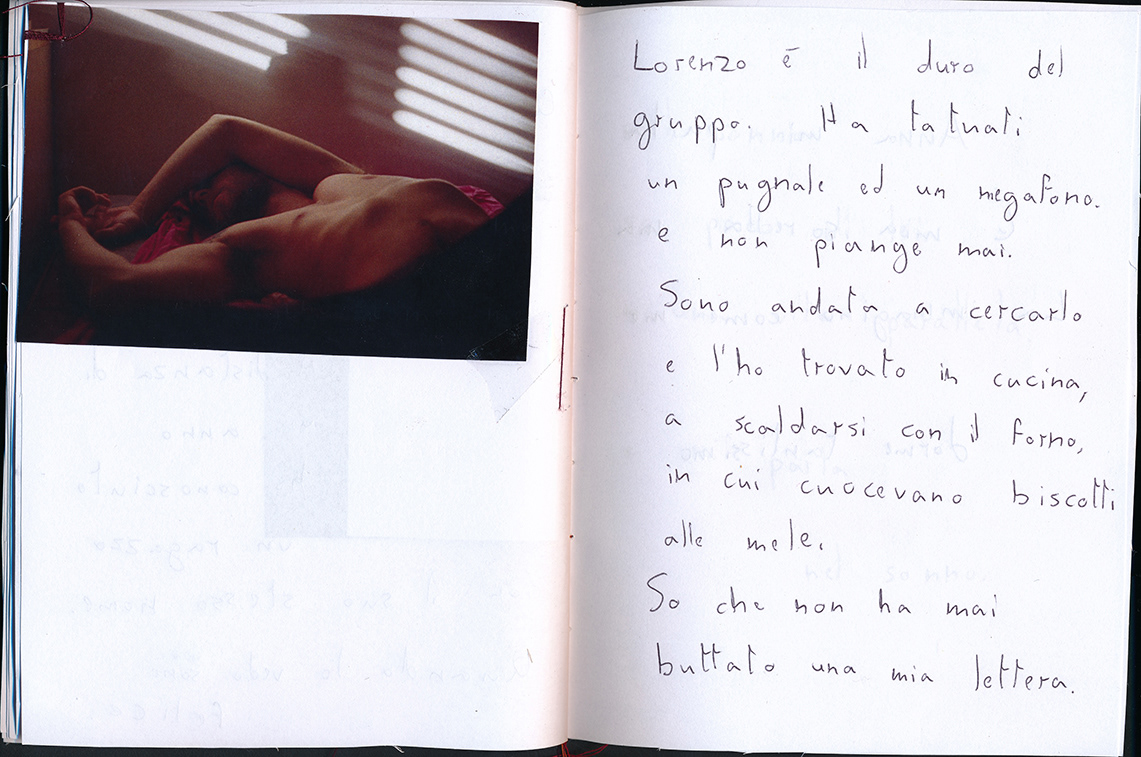 Lorenzo é il duro del
gruppo. Ha tatuati
un pugnale ed un megafono.
e non piange mai.
Sono andata a cercarlo
e l'ho trovato in cucina,
a scaldarsi con il forno,
in cui cuocevano biscotti
alle mele.
So che non ha mai
buttato una mia lettera.